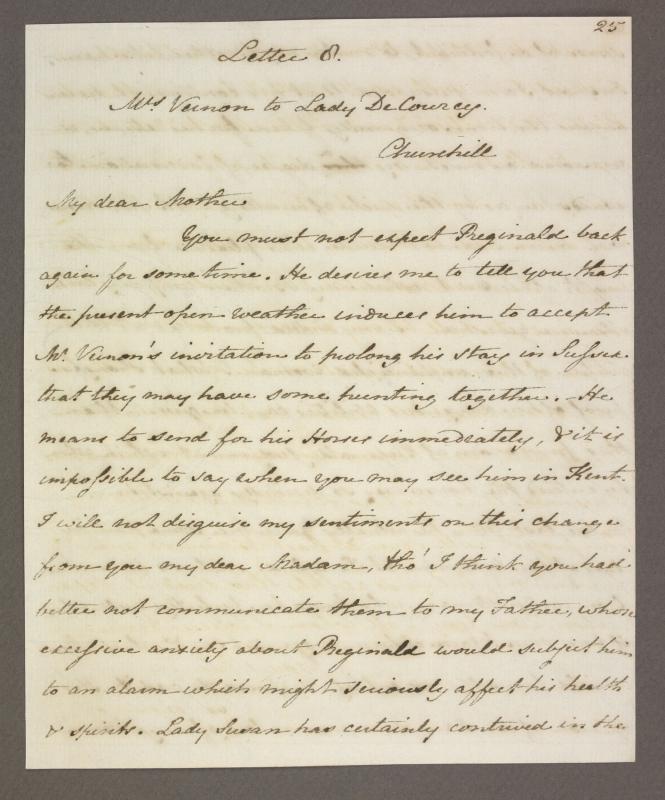 25
Letter 8.
Mrs Vernon to Lady De Courcy.
Churchill
My dear Mother
You must not expect Reginald back
again for some time. He desires me to tell you that
the present open weather induces him to accept
Mr. Vernon's invitation to prolong his stay in Sussex
that they may have some hunting together. – He
means to send for his Horses immediately, & it is
impossible to say when you may see him in Kent.
I will not disguise my sentiments on this change
from you my dear Madam, tho' I think you had
better not communicate them to my Father, whose
excessive anxiety about Reginald would subject him
to an alarm which might seriously affect his health
& spirits. Lady Susan has certainly contrived in the